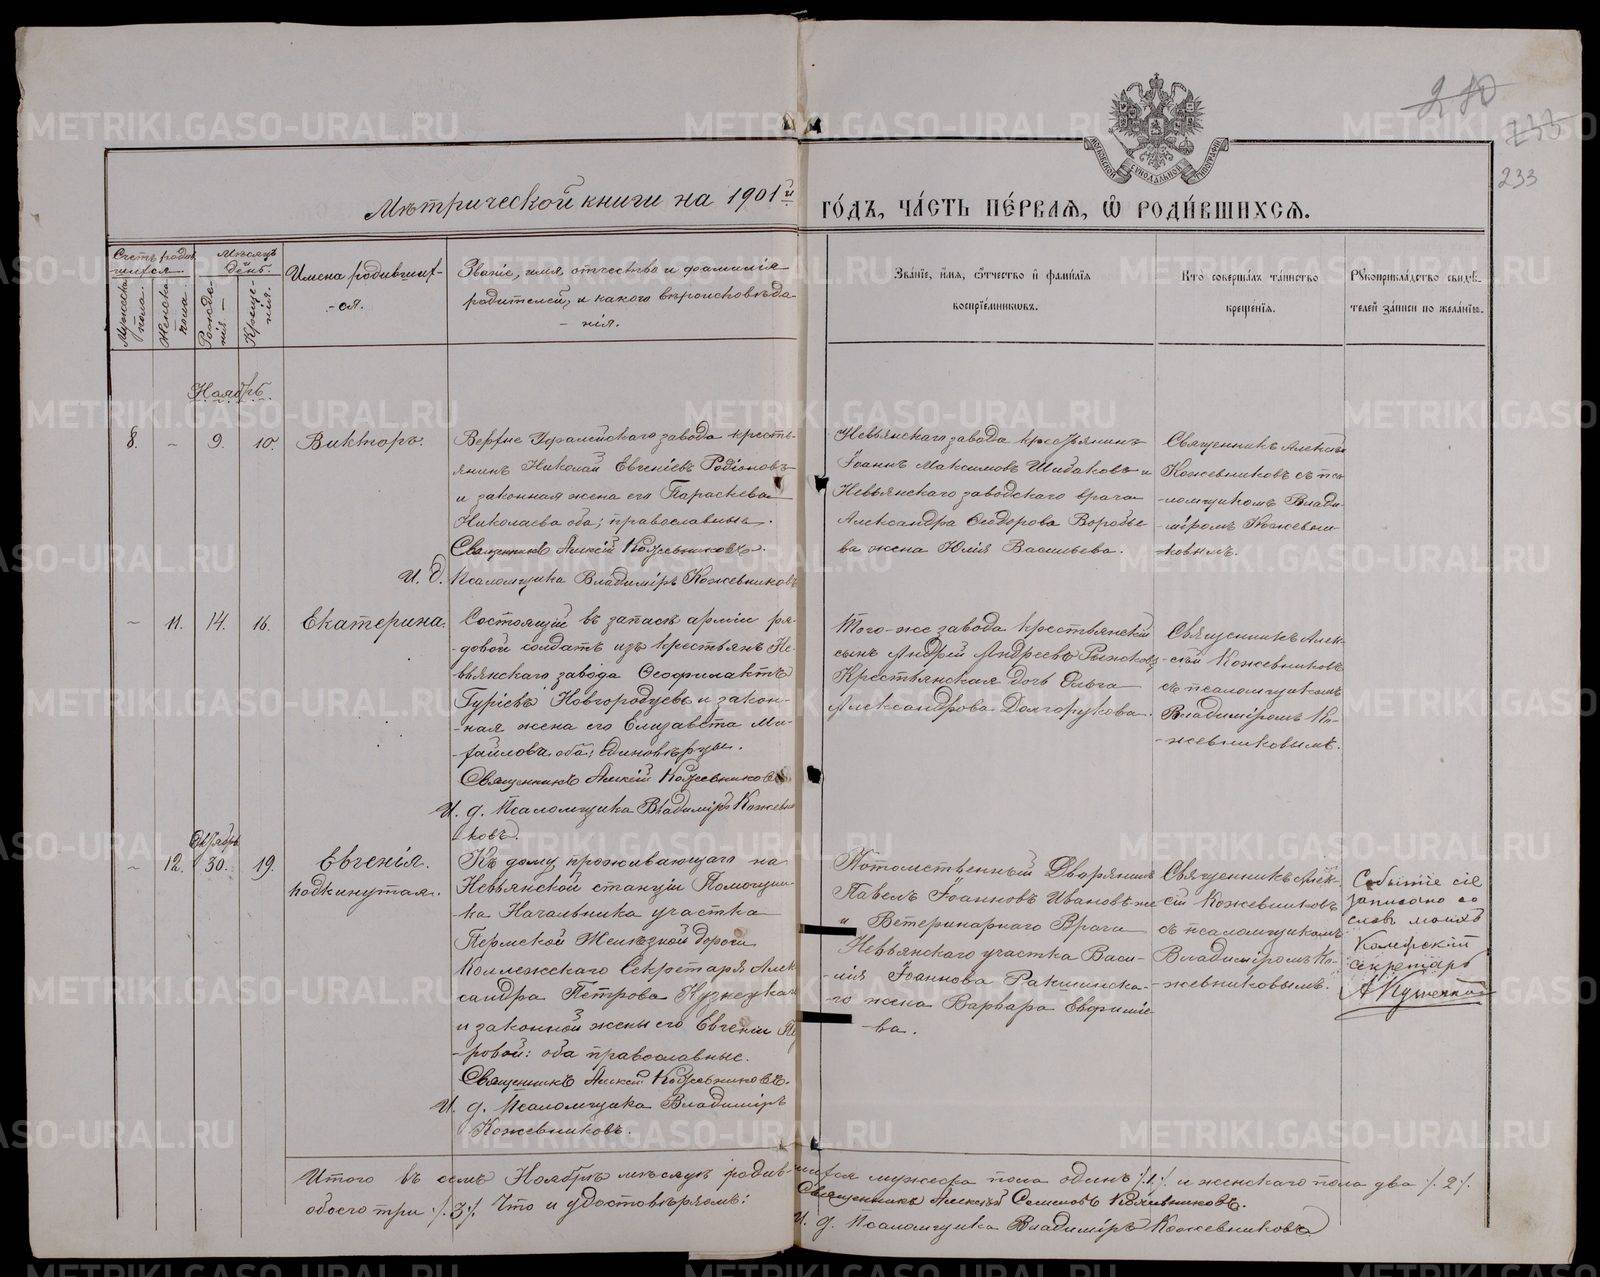 280
233
233
МОСКОВСКОЙ СѴНОДАЛЬНОЙ ТИПОГРАФІИ
Метрической книги на 1901й годъ, часть первая, ѡ родившихся.
Счетъ родившихся
Мужеска пола.
Женска пола.
Мѣсяцъ и день.
Рожденія
Крещенія.
Имена родившихся.
Званіе, имя, отчество и фамилія
родителей, и какого вѣроисповѣда-
нія.
Званіе, имя, отчество и фамилія
воспріемниковъ.
Кто совершалъ таинство
крещенія.
Рукоприкладство свидѣ-
телей записи по желанію.
Ноябрь.
8. - 9. 10. Викторъ.
Верхне Уфалейскаго завода кресть-
янинъ Николай Евгеніевъ Родіоновъ
и законная жена его Параскева
Николаева оба; православные.
Священникъ Алексій Кожевниковъ.
И. д. Псаломщика Владиміръ Кожевниковъ
Невьянскаго завода крестьянинъ
Іоаннъ Максимовъ Шибаковъ и
Невьянскаго заводскаго врача
Александра Ѳеодорова Воробье
ва жена Юлія Васильева.
Священникъ Алексій
Кожевниковъ съ пса
-ломщикомъ Влади-
міромъ Кожевни-
ковымъ.
- 11. 14. 16. Екатерина.
Состоящій въ запасѣ арміи ря-
-довой солдатъ изъ крестьянъ Не-
вьянскаго завода Ѳеофилактъ
Гуріевъ Новгородцевъ и закон-
-ная жена его Елизавета Ми-
-хайлова оба; единовѣрцы.
Священникъ Алексій Кожевниковъ
И. д. Псаломщика Владиміръ Кожевни
ковъ.
Того-же завода крестьянскій
сынъ Андрей Андреевъ Рыжковъ
Крестьянская дочь Ольга
Александрова Долгорукова.
Священникъ Алек-
-сій Кожевниковъ
съ псаломщикомъ
Владиміромъ Ко-
-жевниковымъ.
Октябрь
- 12. 30. 19. Евгенія.
подкинутая.
Къ дому проживающаго на
Невьянской станціи Помощни-
ка Начальника участка
Пермской Желѣзной дороги
Коллежскаго Секретаря Алек
сандра Петрова
и законной жены его Евгеніи
-ровой: оба православные.
Священникъ Алексій Кожевниковъ.
И. д. Псаломщика Владиміръ
Кожевниковъ.
Потомственный Дворянинъ
Павелъ Іоанновъ Ивановъ
и Ветеринарнаго Врача
Невьянскаго участка Васи-
-лія Іоаннова Ракшинска-
-го жена Варвара Евфиміе
ва.
Священникъ Алек-
сій Кожевниковъ
съ псаломщикомъ
Владиміромъ Ко-
-жевниковымъ.
Событіе сіе
записано со
словъ моихъ
секретарь
Итого въ семъ Ноябрѣ мѣсяцѣ родившихся мужеска пола одинъ /.1./. и женскаго пола два /.2./.
обоего три /.3./. Что и удостовѣряемъ: Священникъ Алексій Семеновъ Кожевниковъ.
И. д. Псаломщика Владиміръ Кожевниковъ
METRIKI.GASO-URAL.RU